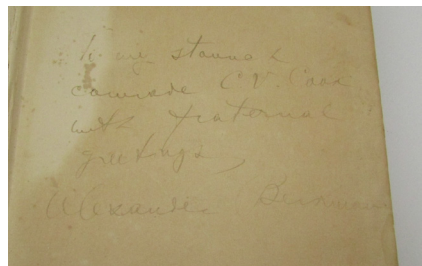 To my staunch
comrade C.V. Cook
with fraternal
greetings,
Alexander Berkman